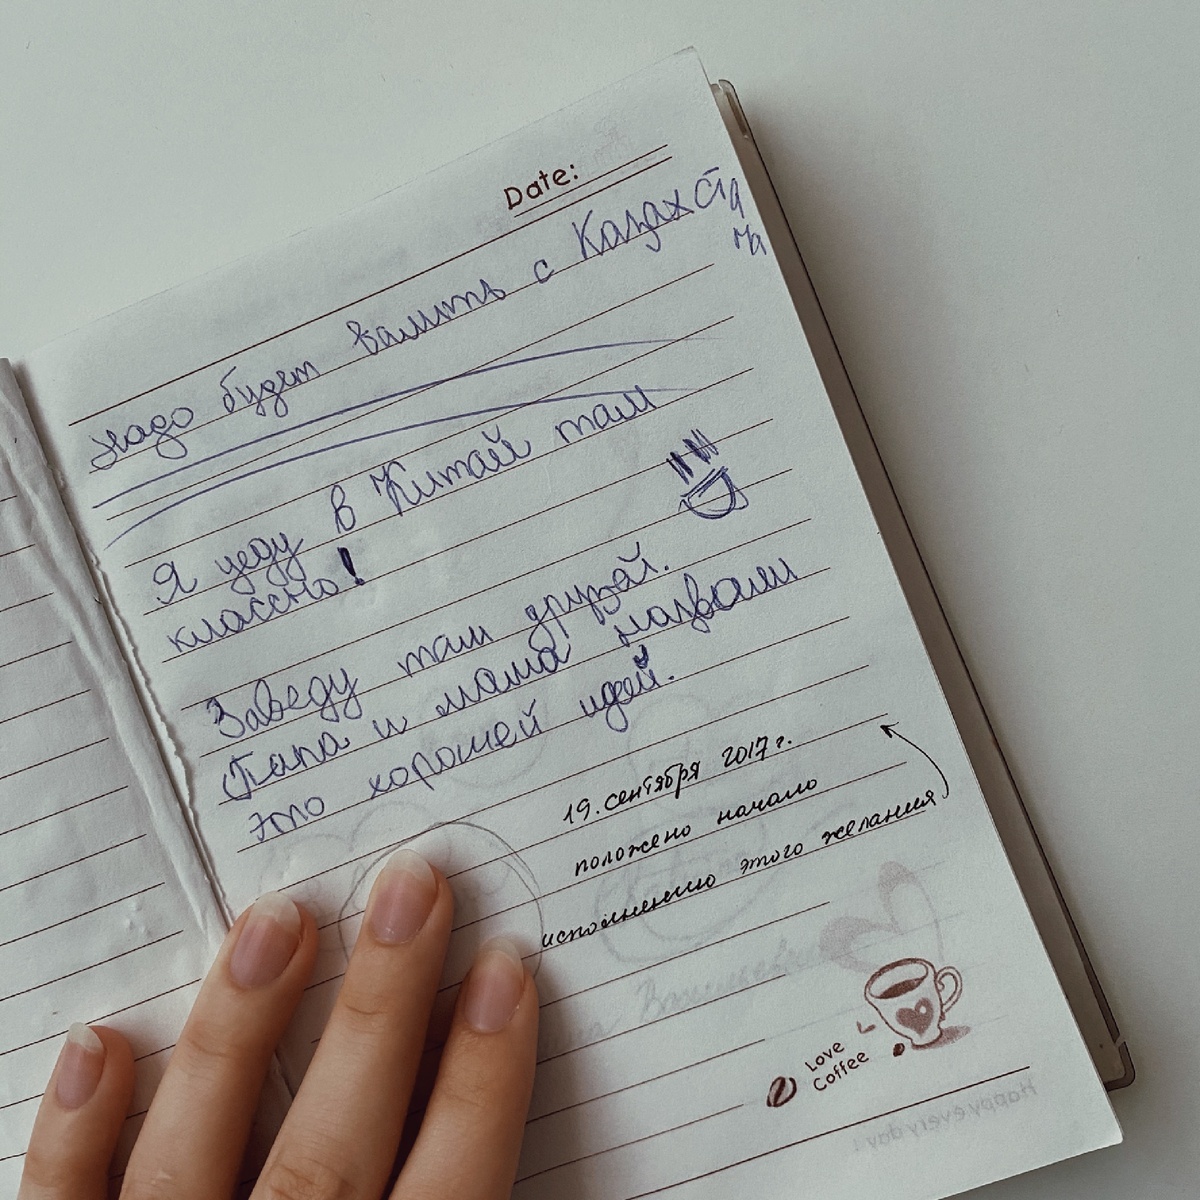 Date:
надо будет валить с Казахста
на
Я уеду в Китай там
классно!
Заведу там друзей.
Папа и мама назвали
это хорошей идей.
19. сентября 2017 г.
положено начало
исполнению этого желания
Love
Coffee
Happy every day!